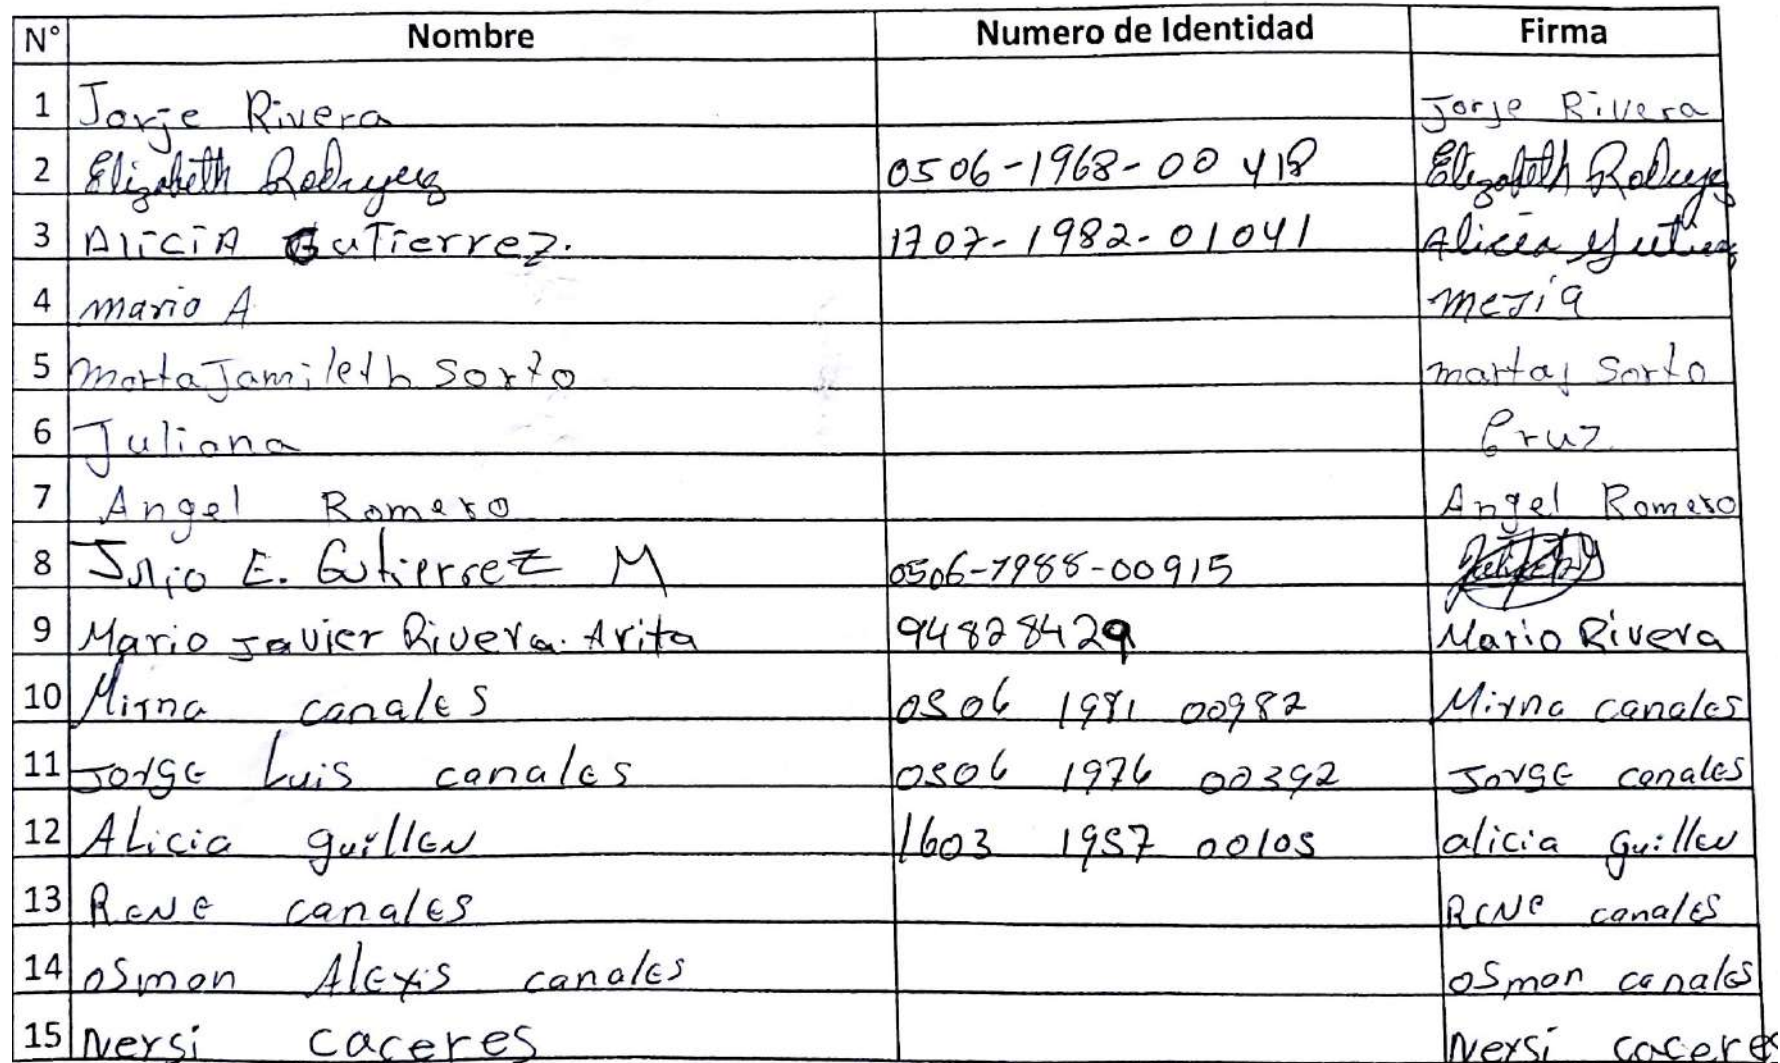 N° Nombre Numero de Identidad Firma
1 Jorje Rivera Jorje Rivera
2 Elizabeth Rodryguez 0506-1968-00418 Elizabeth
3 Alicia Gutierrez. 1707-1982-01041 Alicia
4 mario A mejia
5 marta Jamileth Sorto marta j Sorto
6 Juliana Cruz
7 Angel Romero Angel Romero
8 Julio E. Gutierrez M 0506-1988-00915
9 Mario Javier Rivera. Arita 94828429 Mario Rivera
10 Mirna canales 0506 1981 00982 Mirna canales
11 Jorge Luis canales 0506 1976 00392 Jorge canales
12 ALicia guillen 1603 1957 00105 alicia guillen
13 Rene canales Rene canales
14 osman Alexis canales osman canales
15 Nersi caceres Nersi caceres